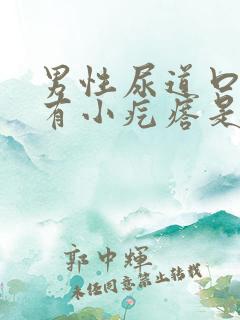 男性尿道口
有小疙瘩是
郭中辉
未经同意禁止转载